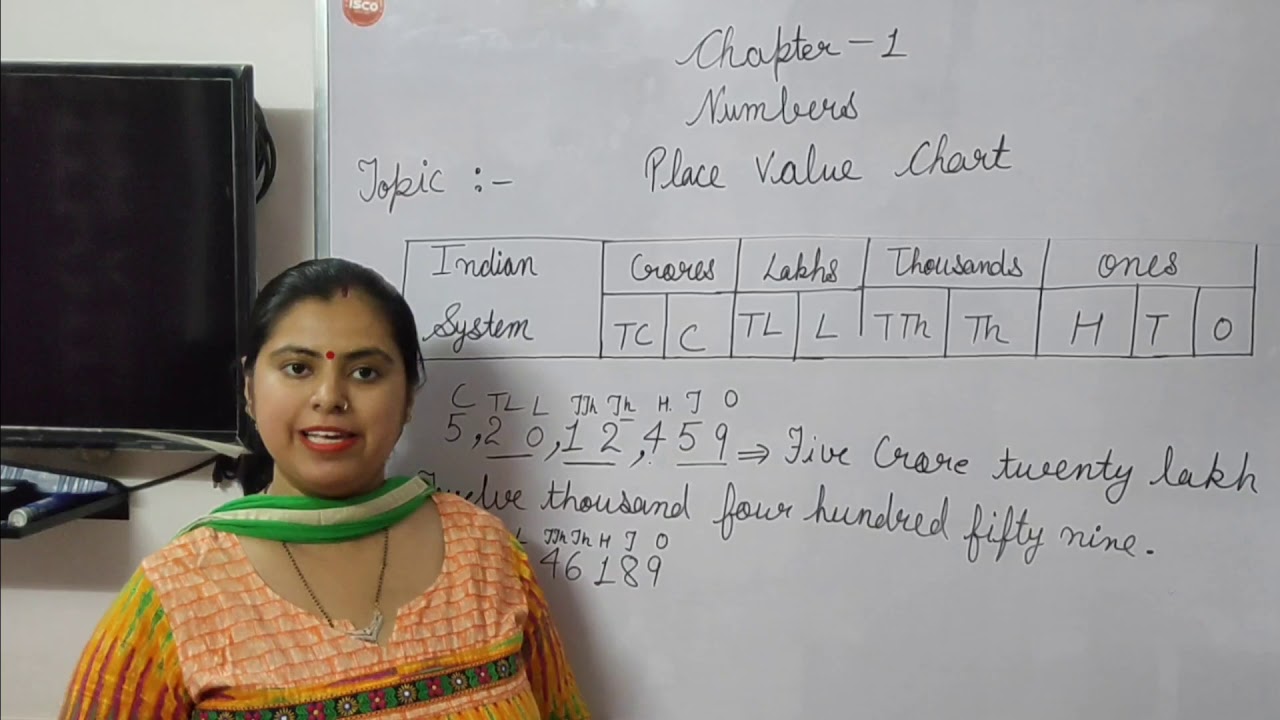 ISCO
Chapter - 1
Numbers
Topic :- Place Value Chart
Indian System Crores Lakhs Thousands Ones
TC C TL L TTh Th H T O
C TL L TTh Th H. T O
5,20,12,459 ⇒ Five Crore twenty lakh
Twelve thousand four hundred fifty nine.
L TTh Th H T O
46189